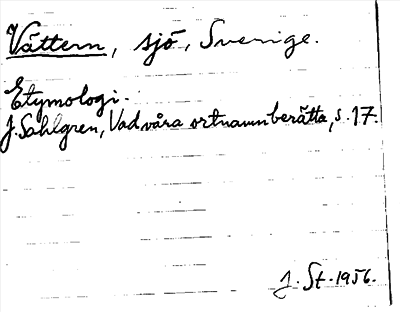 Vättern, sjö, Sverige.
Etymologi.
J. Sahlgren, Vad våra ortnamn berätta, s. 17.
J. St. 1956.